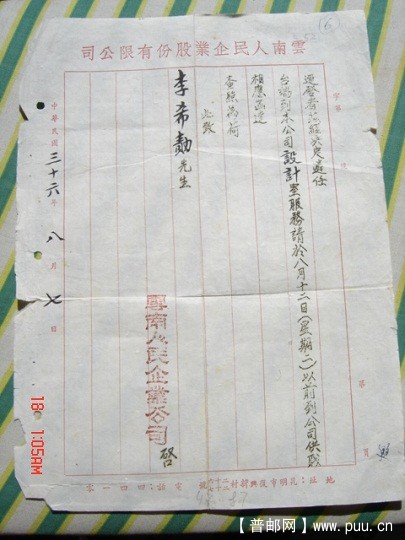 雲南人民企業股份有限公司
逕啓者茲經決定選任
台端到本公司設計室服務請於八月十二日(星期二)以前到公司供職
相應函達
查照為荷
此致
李希勛先生
雲南人民企業公司 啓
中華民國三十六年八月七日
地址:昆明市復興新村 號 電話:四四一零
18 1:05AM
【普邮网】www.puu.cn